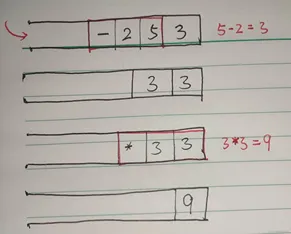 - 2 5 3 5-2=3
3 3
* 3 3 3*3=9
9